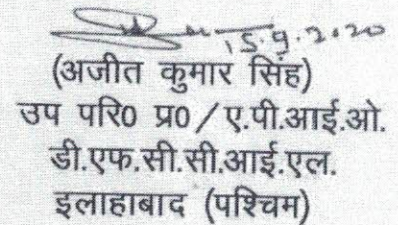 15.9.2020
(अजीत कुमार सिंह)
उप परि0 प्र0/ए.पी.आई.ओ.
डी.एफ.सी.सी.आई.एल.
इलाहाबाद (पश्चिम)